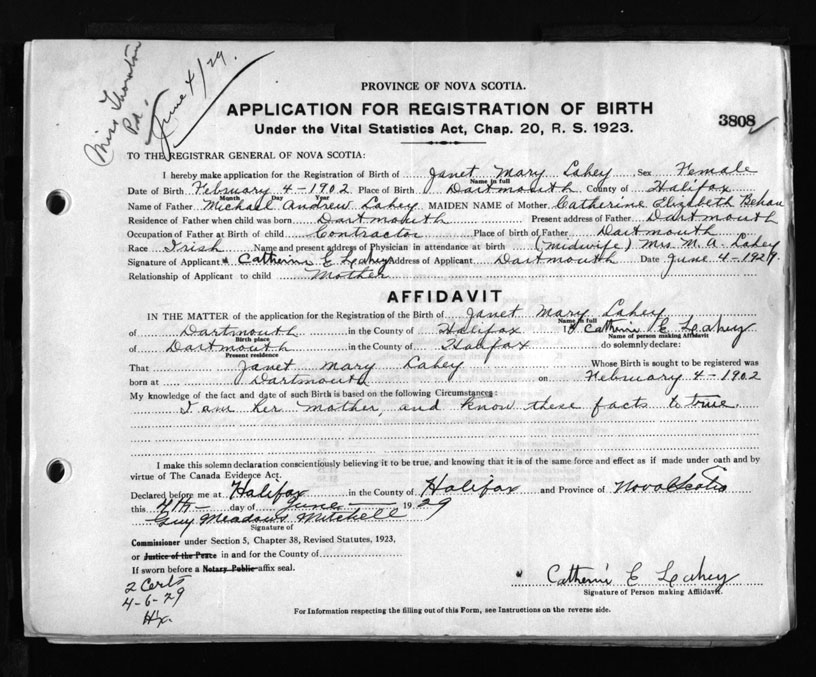 Miss Thornton
Pd.
June 4/29.
PROVINCE OF NOVA SCOTIA.
APPLICATION FOR REGISTRATION OF BIRTH
3808
Under the Vital Statistics Act, Chap. 20, R. S. 1923.
TO THE REGISTRAR GENERAL OF NOVA SCOTIA:
I hereby make application for the Registration of Birth of Janet Mary Lahey Sex Female
Name in full
Date of Birth February 4-1902 Place of Birth Dartmouth County of Halifax
Month Day Year
Name of Father Michael Andrew Lahey MAIDEN NAME of Mother Catherine Elizabeth Behan
Residence of Father when child was born Dartmouth Present address of Father Dartmouth
Occupation of Father at Birth of child Contractor Place of birth of Father Dartmouth
Race Irish Name and present address of Physician in attendance at birth (midwife) Mrs. M. A. Lahey
Signature of Applicant Catherine E Lahey Address of Applicant Dartmouth Date June 4-1929.
Relationship of Applicant to child Mother
AFFIDAVIT
IN THE MATTER of the application for the Registration of the Birth of Janet Mary Lahey
Name in full
of Dartmouth in the County of Halifax I Catherine E Lahey
Birth place Name of person making Affidavit
of Dartmouth in the County of Halifax do solemnly declare:
Present residence
That Janet Mary Lahey Whose Birth is sought to be registered was
born at Dartmouth on February 4-1902
My knowledge of the fact and date of such Birth is based on the following Circumstances:
I am her mother, and know these facts to true.
I make this solemn declaration conscientiously believing it to be true, and knowing that it is of the same force and effect as if made under oath and by
virtue of The Canada Evidence Act.
Declared before me at Halifax in the County of Halifax and Province of Nova Scotia
this 4th day of June 1929
Guy Meadows Mitchell
Signature of
Commissioner under Section 5, Chapter 38, Revised Statutes, 1923,
or Justice of the Peace in and for the County of
If sworn before a Notary Public affix seal.
2 Certs
4-6-29
Hx.
Catherine E Lahey
Signature of Person making Affidavit.
For Information respecting the filling out of this Form, see Instructions on the reverse side.